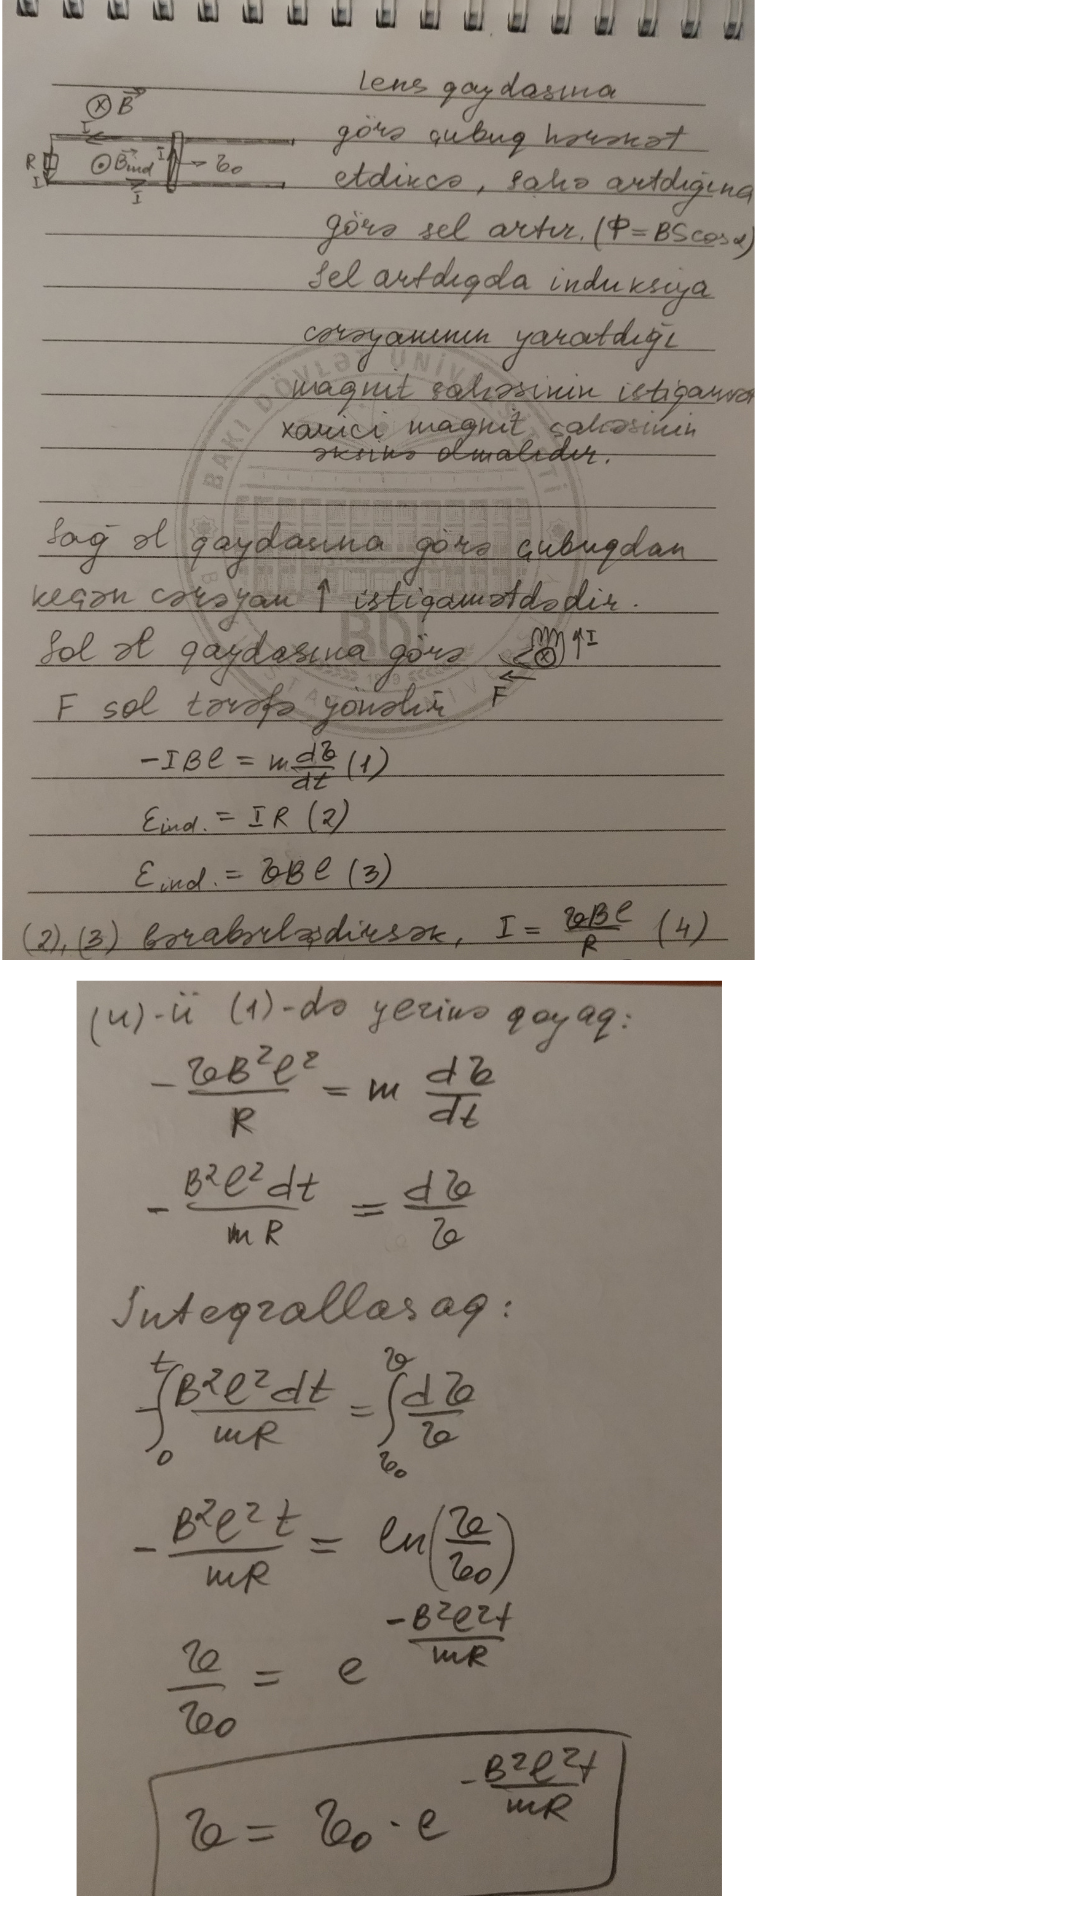 Lens qaydasına
⊗ B⃗
I
görə çubuq hərəkət
R
⊙ B⃗ind
I
→ v₀
I
I
etdikcə, sahə artdığına
görə sel artır. (Φ = BScosα)
Sel artdıqda induksiya
cərəyanının yaratdığı
maqnit sahəsinin istiqaməti
xarici maqnit sahəsinin
əksinə olmalıdır.
BAKI DÖVLƏT UNİVERSİTETİ
Sağ əl qaydasına görə çubuqdan
keçən cərəyan ↑ istiqamətdədir.
BDU
Sol əl qaydasına görə ⊗ ↑I
1919
F sol tərəfə yönəlir F
-IBl = m dv/dt (1)
Ɛind. = IR (2)
Ɛind. = vBl (3)
(2), (3) bərabərləşdirsək, I = vBl/R (4)
(4)-ü (1)-də yerinə qoyaq:
- vB²l²/R = m dv/dt
- B²l²dt/mR = dv/v
İnteqrallasaq:
-∫₀ᵗ B²l²dt/mR = ∫_{v₀}^{v} dv/v
- B²l²t/mR = ln(v/v₀)
v/v₀ = e^{-B²l²t/mR}
v = v₀ · e^{-B²l²t/mR}